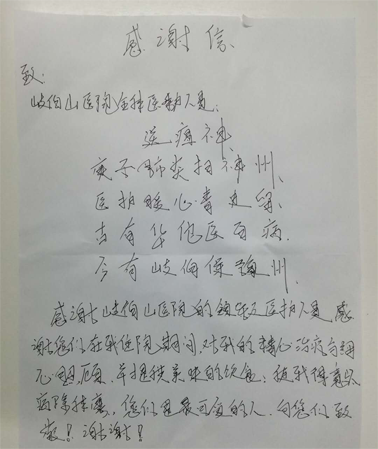 感谢信
致：
岐伯山医院全体医护人员：
送瘟神
庚子肺炎扫神州、
医护暖心毒走留、
古有华佗医百病.
今有岐伯保瀛州.
感谢岐伯山医院的领导及医护人员 感
谢您们在我住院期间，对我的精心治疗与细
心照顾，并提供美味的饮食；使我得意见
病除，您们是最可爱的人. 向您们致
敬！谢谢！